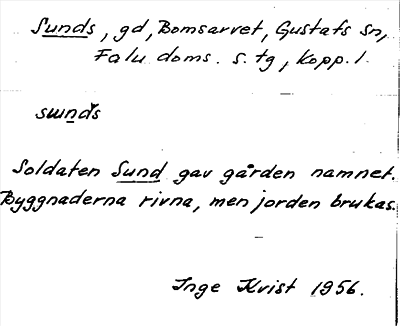 Sunds, gd, Bomsarvet, Gustafs sn,
Falu doms. s. tg, Kopp. l.
Soldaten Sund gav gården namnet.
Byggnaderna rivna, men jorden brukas.
Inge Kvist 1956.